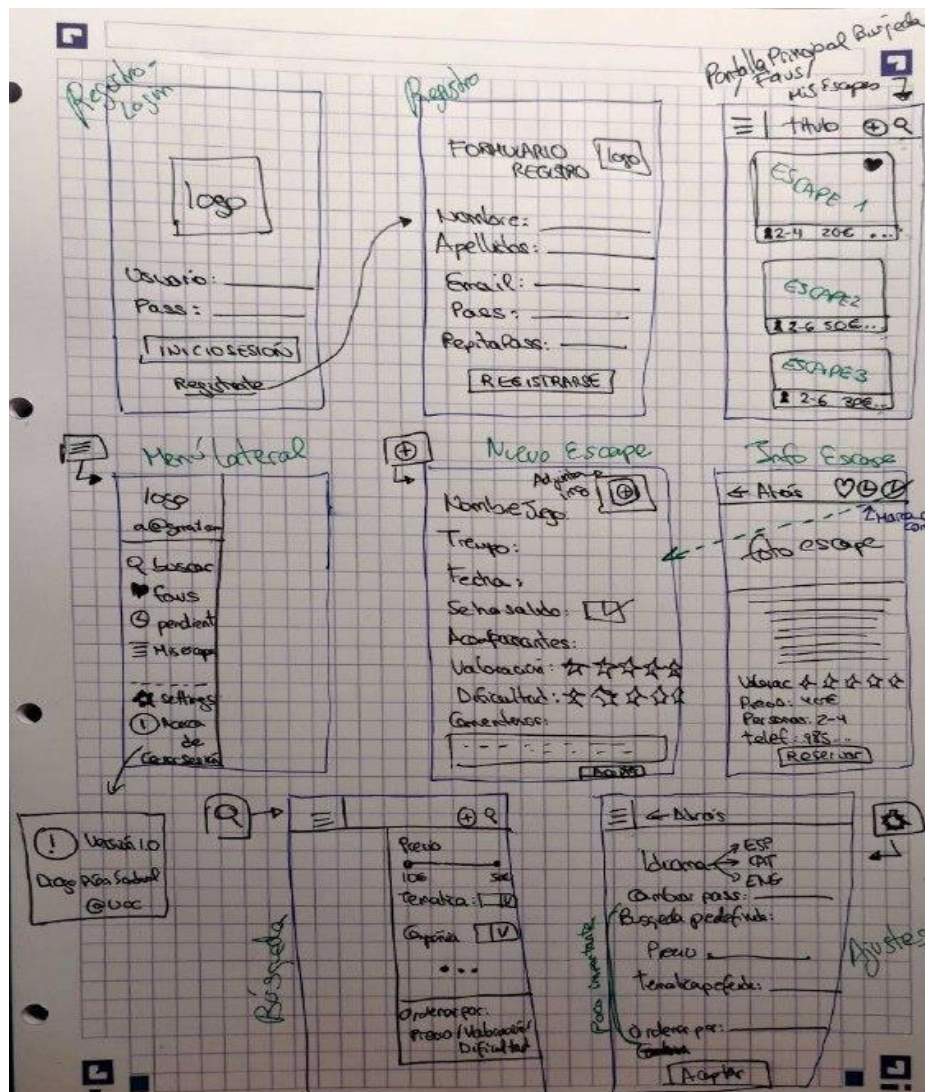 Registro-
Login
logo
Usuario:
Pass:
INICIO SESIÓN
Registrate
Registro
FORMULARIO
REGISTRO
logo
Nombre:
Apellidos:
Email:
Pass:
Repita Pass:
REGISTRARSE
Pantalla Principal Búsqueda
Favs/
Mis Escapes
título
ESCAPE 1
2-4 20€ ...
ESCAPE 2
2-6 50€...
ESCAPE 3
2-6 30€...
Menú Lateral
logo
buscar
favs
pendient
Mis escap
settings
Acerca
de
Cerrar sesión
Nuevo Escape
Adjuntar
img
Nombre Juego:
Tiempo:
Fecha:
Se ha salido:
Acompañantes:
Valoración:
Dificultad:
Comentarios:
Info Escape
← Atrás
foto escape
Valorac
Precio: 40€
Personas: 2-4
telef: 985...
Reservar
! Versión 1.0
@UOC
Búsqueda
Precio
10€ 50€
Tematica:
Compañía
...
Ordenar por:
Precio/Valoración/
Dificultad
← Atrás
Idioma
ESP
CAT
ENG
Cambiar pass:
Busqeda predefinida:
Precio
Ordenar por:
Aceptar
Poco importante
Ajustes